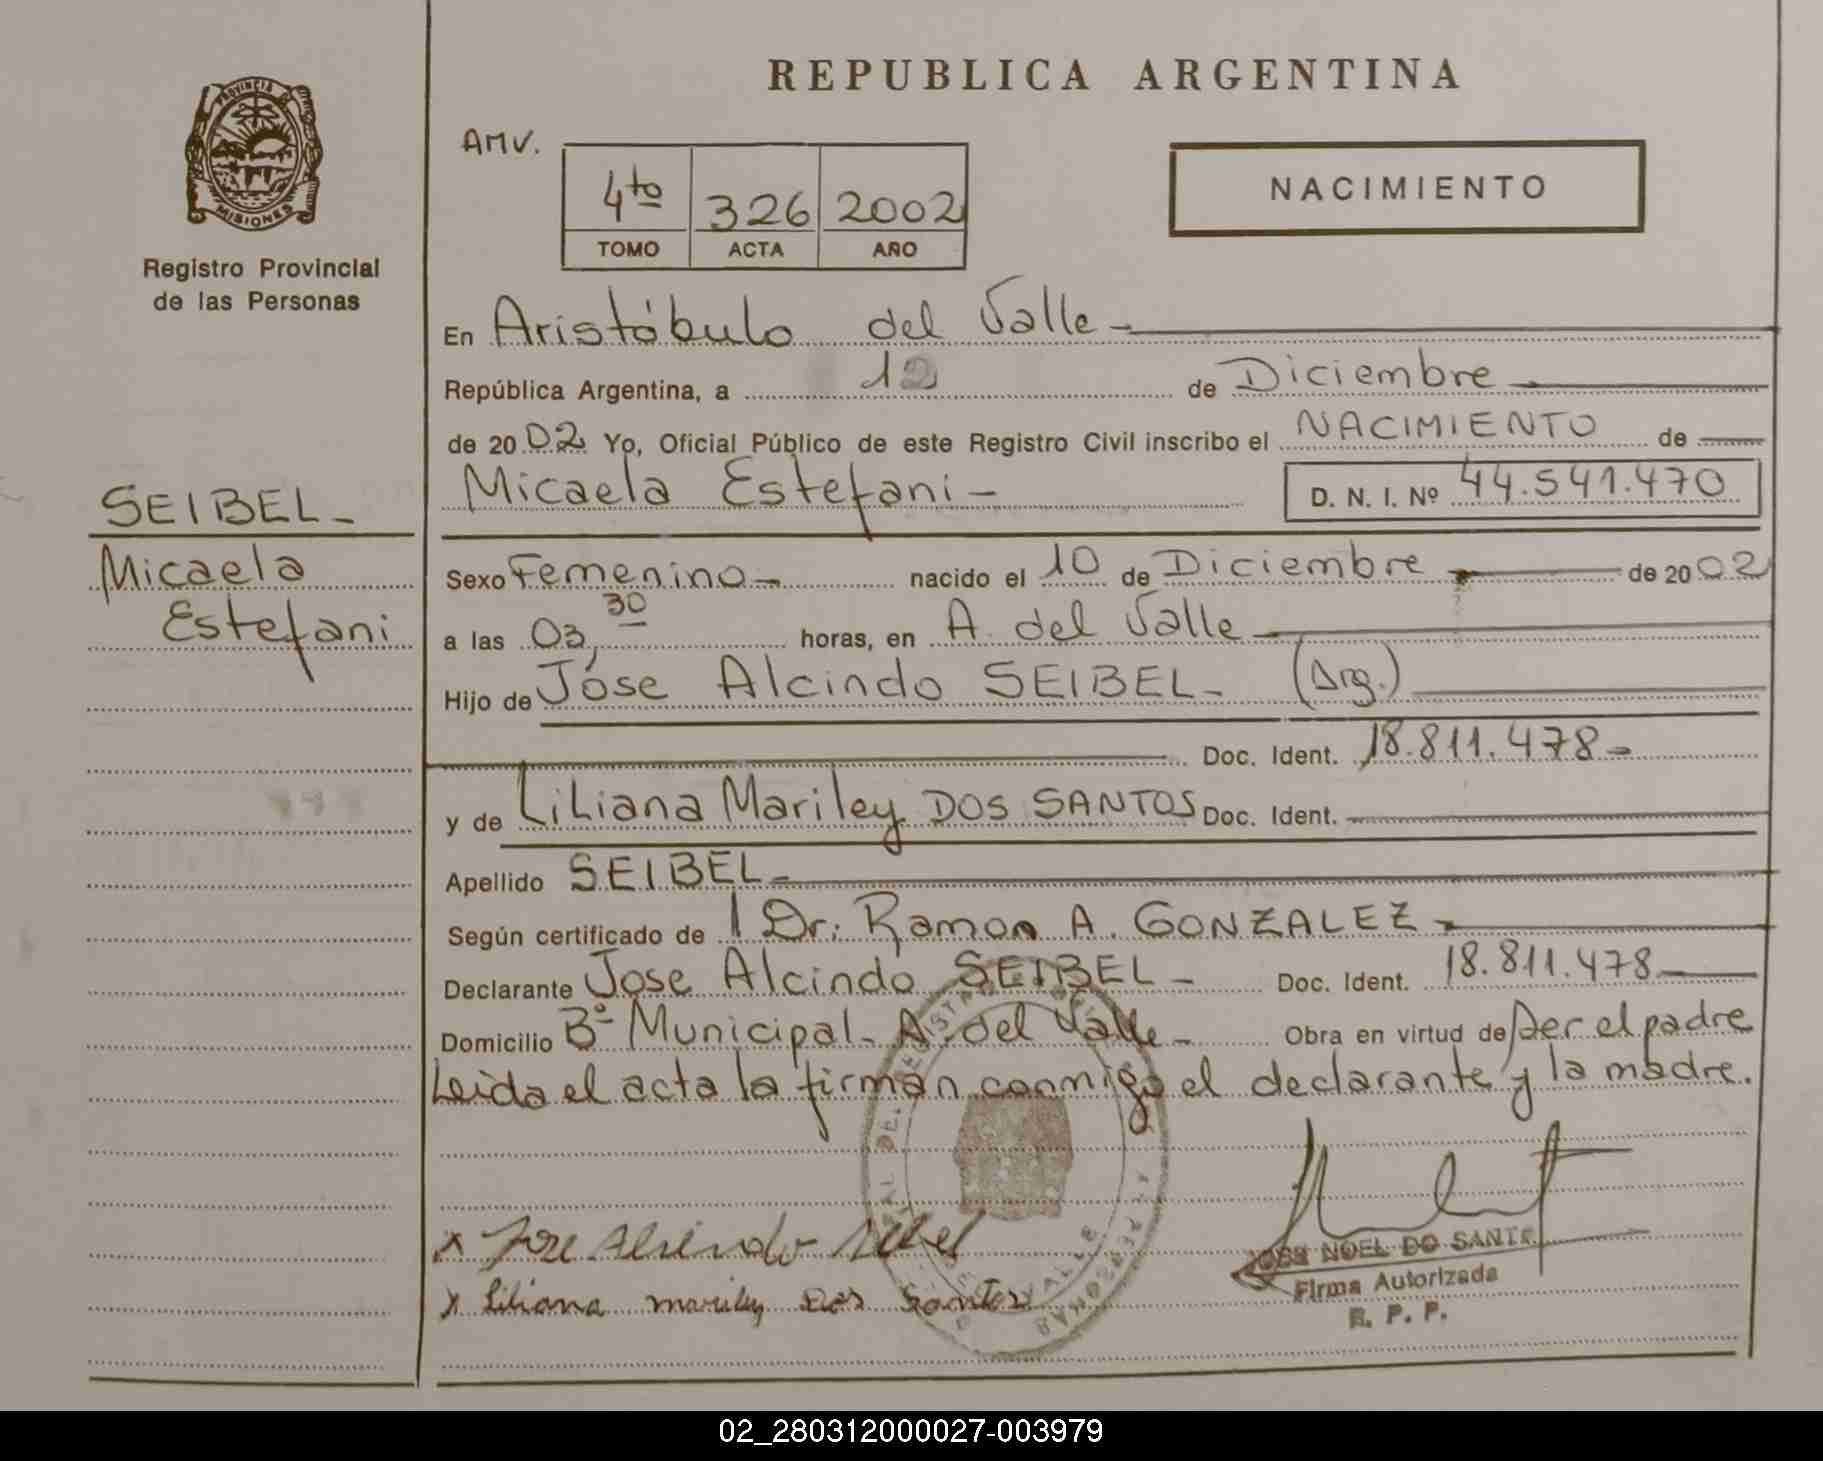 REPUBLICA ARGENTINA
PROVINCIA DE
MISIONES
Registro Provincial
de las Personas
AMV.
4to 326 2002
TOMO ACTA AÑO
NACIMIENTO
En Aristóbulo del Valle -
República Argentina, a 12 de Diciembre
de 20 02 Yo, Oficial Público de este Registro Civil inscribo el NACIMIENTO de
Micaela Estefani - D. N. I. Nº 44.541.470
SEIBEL -
Micaela
Estefani
Sexo Femenino - nacido el 10 de Diciembre de 20 02
a las 03,30 horas, en A. del Valle -
Hijo de Jóse Alcindo SEIBEL - (Arg.)
Doc. Ident. 18.811.478 -
y de Liliana Mariley DOS SANTOS Doc. Ident.
Apellido SEIBEL -
Según certificado de Dr. Ramon A. GONZALEZ -
Declarante Jose Alcindo SEIBEL - Doc. Ident. 18.811.478
Domicilio Bº Municipal - A. del Valle - Obra en virtud de Ser el padre
Leida el acta la firman conmigo el declarante y la madre.
x Jose Alcindo Seibel
x Liliana mariley Dos Santos
JOSE NOEL DO SANTS
Firma Autorizada
R. P. P.
02_280312000027-003979